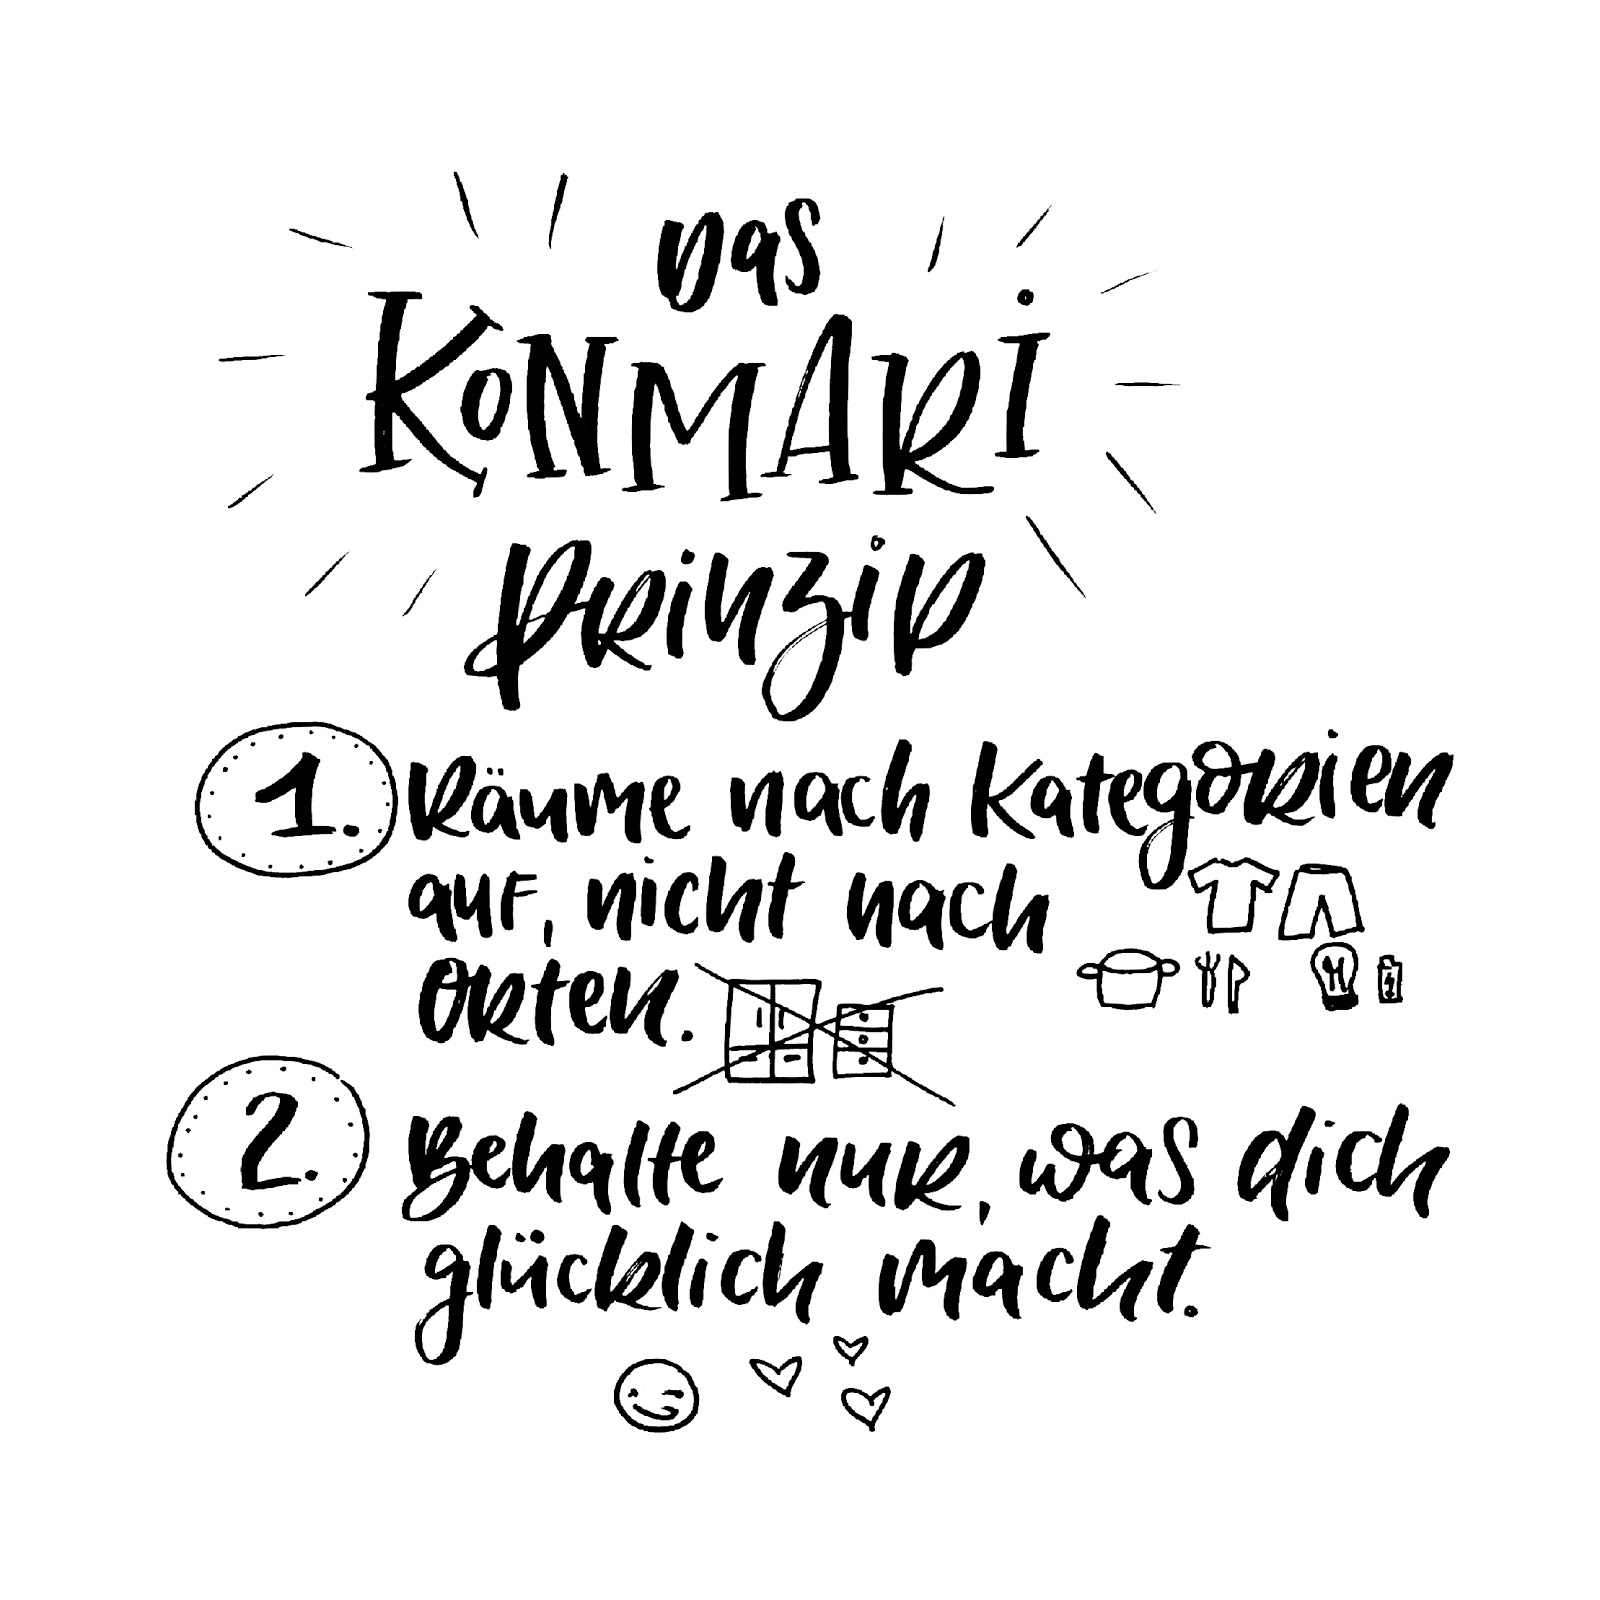 Das
KONMARi
Prinzip
1. Räume nach Kategorien
auf, nicht nach
Orten.
2. Behalte nur, was dich
glücklich macht.